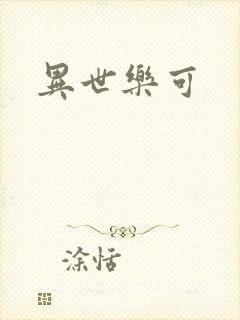 異世樂可
涂恬